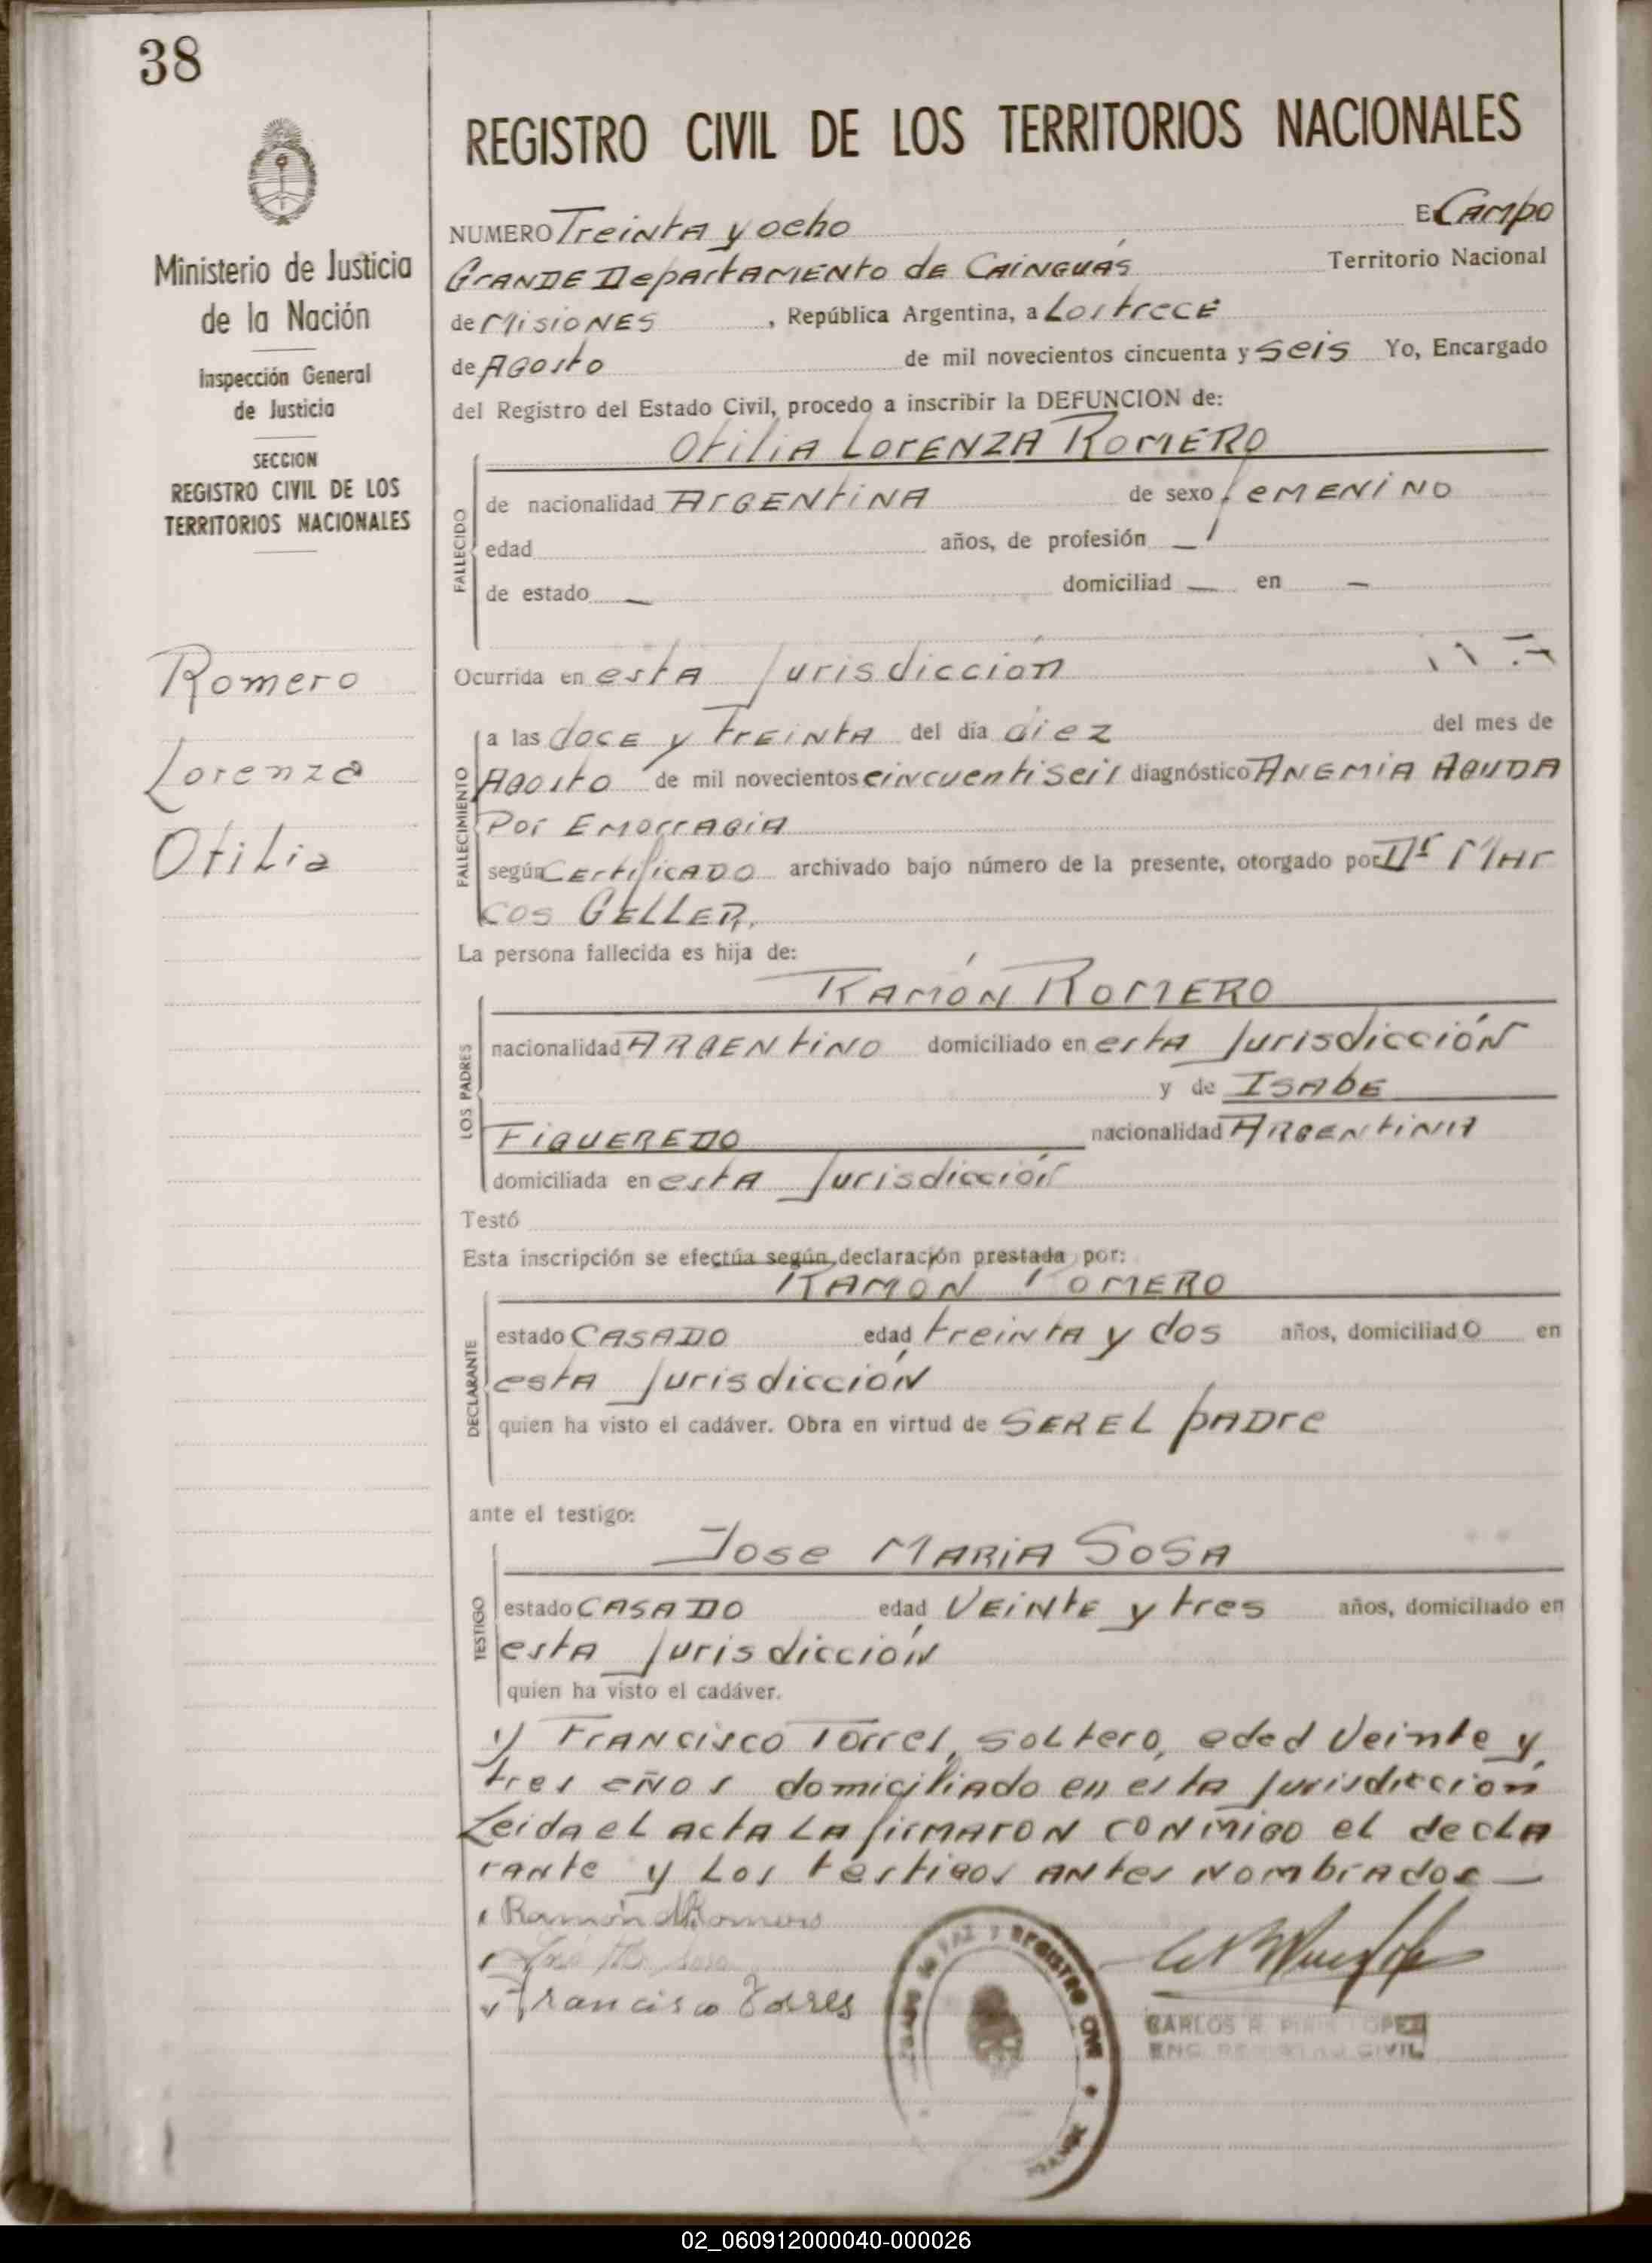 38
Ministerio de Justicia
de la Nación
Inspección General
de Justicia
SECCION
REGISTRO CIVIL DE LOS
TERRITORIOS NACIONALES
Romero
Lorenza
Otilia
REGISTRO CIVIL DE LOS TERRITORIOS NACIONALES
NUMERO Treinta y ocho En Campo
Grande Departamento de Cainguás Territorio Nacional
de Misiones, República Argentina, a Los trece
de Agosto de mil novecientos cincuenta y seis Yo, Encargado
del Registro del Estado Civil, procedo a inscribir la DEFUNCION de:
Otilia Lorenza Romero
FALLECIDO
de nacionalidad Argentina de sexo femenino
edad años, de profesión —
de estado — domiciliad — en —
Ocurrida en esta Jurisdicción
FALLECIMIENTO
a las doce y treinta del día diez del mes de
Agosto de mil novecientos cincuentiseis diagnóstico Anemia Aguda
Por Emorragia
según Certificado archivado bajo número de la presente, otorgado por Dr Mar
cos Geller.
La persona fallecida es hija de:
Ramón Romero
LOS PADRES
nacionalidad Argentino domiciliado en esta Jurisdicción
y de Isabe
Figueredo nacionalidad Argentina
domiciliada en esta Jurisdicción
Testó
Esta inscripción se efectúa según declaración prestada por:
Ramón Romero
DECLARANTE
estado Casado edad treinta y dos años, domiciliado en
esta Jurisdicción
quien ha visto el cadáver. Obra en virtud de ser el padre
ante el testigo:
Jose Maria Sosa
TESTIGO
estado Casado edad Veinte y tres años, domiciliado en
esta Jurisdicción
quien ha visto el cadáver.
y Francisco Torres, soltero, edad Veinte y
tres años domiciliado en esta Jurisdicción
Leida el acta la firmaron conmigo el decla
rante y los testigos antes nombrados —
Ramón Romero
Francisco Torres
PAZ Y REGISTRO CIVIL
CARLOS R. LOPEZ
ENC. REGISTRO CIVIL
02_060912000040-000026